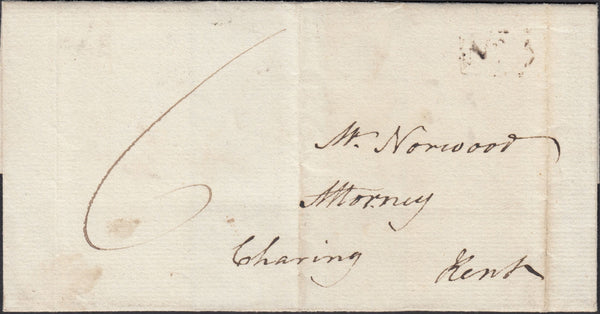 6
Mr. Norwood
Attorney
Charing Kent